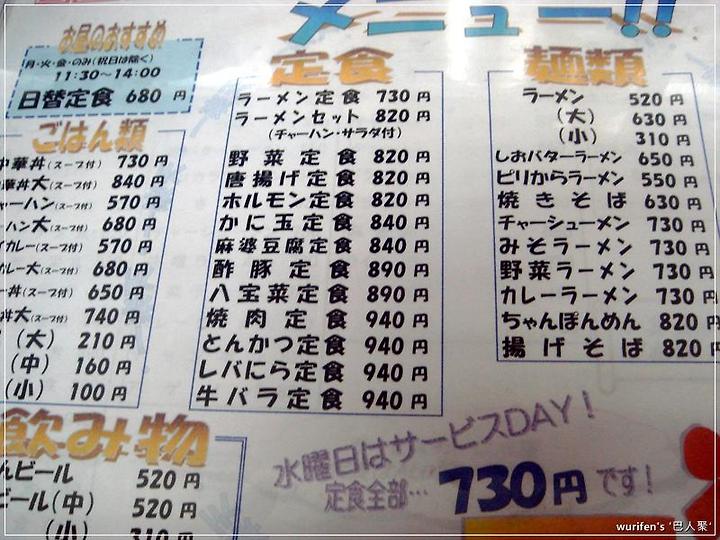 メニュー!!
お昼のおすすめ
月・火・金・のみ(祝日は除く)
11:30~14:00
日替定食 680 円
ごはん類
中華丼(スープ付) 730 円
華丼大(スープ付) 840 円
ーハン(スープ付) 570 円
ーハン大(スープ付) 680 円
イカレー(スープ付) 570 円
カレー大(スープ付) 680 円
ー丼(スープ付) 650 円
丼大(スープ付) 740 円
(大) 210 円
(中) 160 円
(小) 100 円
飲み物
んビール 520 円
ビール(中) 520 円
(小) 310 円
定食
ラーメン定食 730 円
ラーメンセット 820 円
(チャーハン・サラダ付)
野菜定食 820 円
唐揚げ定食 820 円
ホルモン定食 820 円
かに玉定食 840 円
麻婆豆腐定食 840 円
酢豚定食 890 円
八宝菜定食 890 円
焼肉定食 940 円
とんかつ定食 940 円
レバにら定食 940 円
牛バラ定食 940 円
麺類
ラーメン 520 円
(大) 630 円
(小) 310 円
しおバターラーメン 650 円
ピリからラーメン 550 円
焼きそば 630 円
チャーシューメン 730 円
みそラーメン 730 円
野菜ラーメン 730 円
カレーラーメン 730 円
ちゃんぽんめん 820 円
揚げそば 820 円
水曜日はサービスDAY!
定食全部… 730円です!
wurifen's '巴人聚'